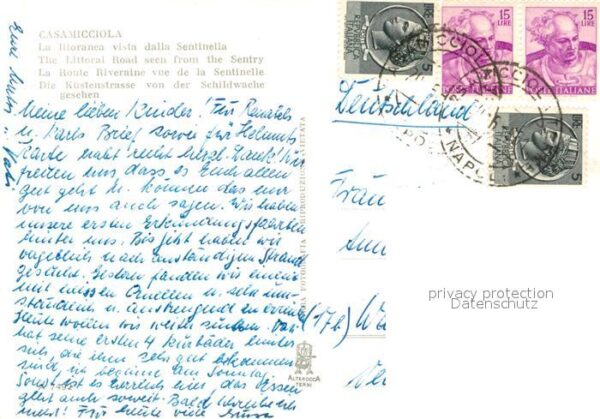 CASAMICCIOLA
La litoranea vista dalla Sentinella
The Littoral Road seen from the Sentry
La Route Rivernine vue de la Sentinelle
Die Küstenstrasse von der Schildwache
gesehen
Meine lieben Kinder! Für Renates
u. Karls Brief sowie für Helmuts
Karte habt recht herzl. Dank. Wir
freuen uns, dass es Euch allen
gut geht u. können das nur
von uns auch sagen. Wir haben
unsere ersten Erkundungsfahrten
hinter uns. Bis jetzt haben wir
vergeblich nach anständigem Strand
gesucht. Gestern fanden wir einen
mit heissen Quellen u. sehr um-
ständlich u. anstrengend zu
Heute wollen wir weiter suchen.
hat seine ersten 4 hinter
sich, die ihm sehr gut bekommen
sind, ich beginne am Sonntag.
Sonst ist es herrlich hier, das Essen
geht auch soweit. Bald
mehr! Für heute viele Grüsse
Eure Mutti
u. Vati
RIPRODUZIONE VIETATA
ALTEROCCA
TERNI
15
LIRE
15
LIRE
POSTE ITALIANE
5
5
CASAMICCIOLA
NAPOLI
Deutschland
Frau
(17b)
privacy protection
Datenschutz